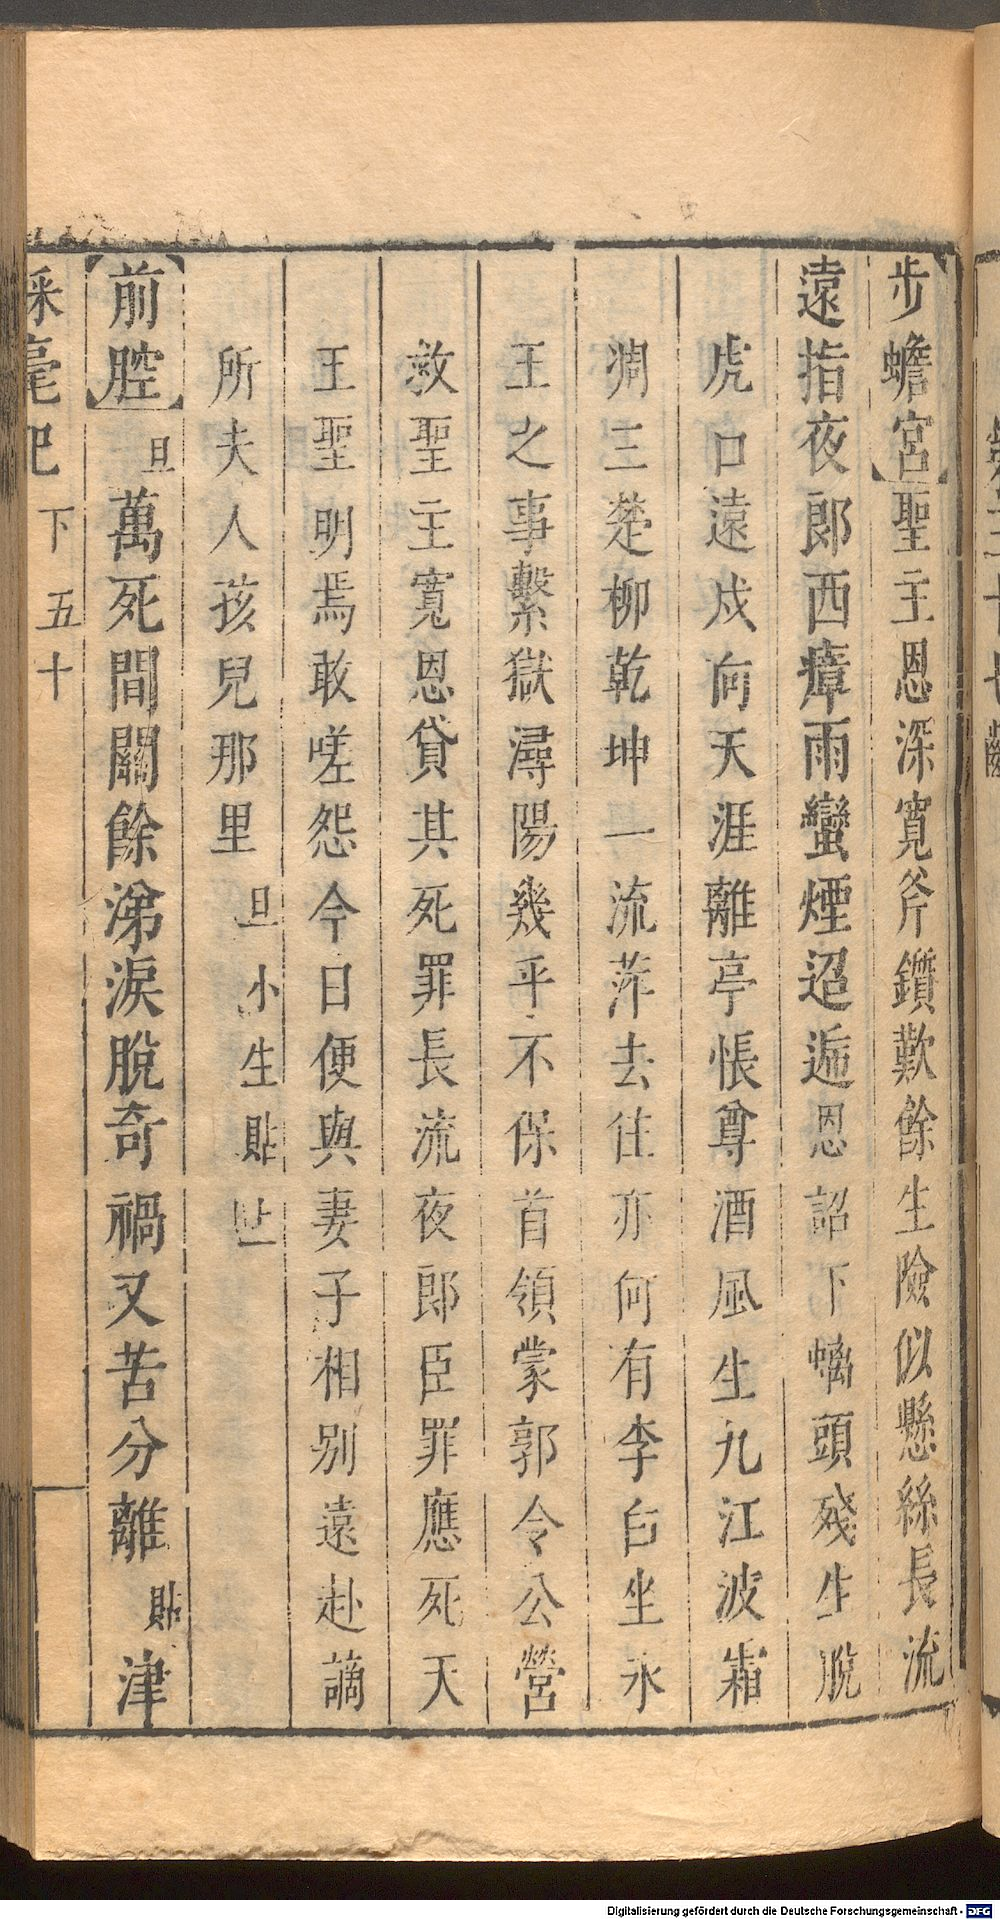 步蟾宮聖主恩深寬斧鑕歎餘生險似懸絲長流
遠指夜郎西瘴雨蠻煙迢逓恩詔下螭頭殘生脫
虎口遠戍向天涯離亭悵尊酒風生九江波霜
凋三楚柳乾坤一流萍去住亦何有李白坐永
王之事繫獄潯陽幾乎不保首領蒙郭令公營
救聖主寬恩貸其死罪長流夜郎臣罪應死天
王聖明焉敢嗟怨今日便與妻子相别遠赴謫
所夫人孩兒那里旦小生貼上
前腔旦萬死間關餘涕淚脫奇禍又苦分離貼津
毫記下五十
Digitalisierung gefördert durch die Deutsche Forschungsgemeinschaft - DFG